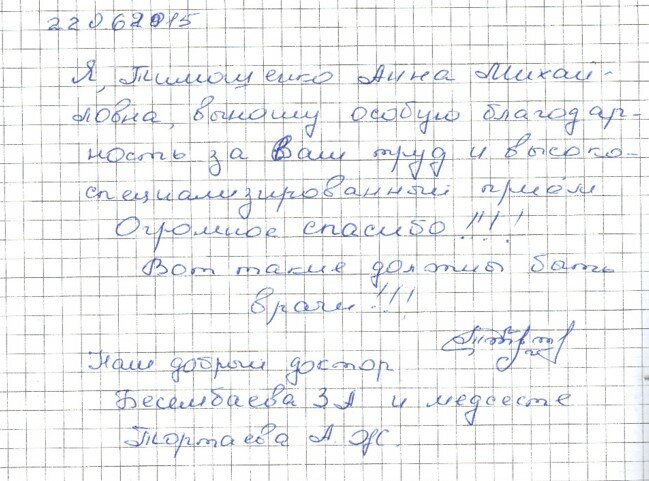 22062015
Я, Тимощенко Анна Михай-
ловна, выношу особую благодар-
ность за Ваш труд и высоко-
специализированный приём
Огромное спасибо!!!!
Вот такие должны быть
врачи!!!
Наш добрый доктор
Бесембаева З А и медсесте
Тортаева А Ж.